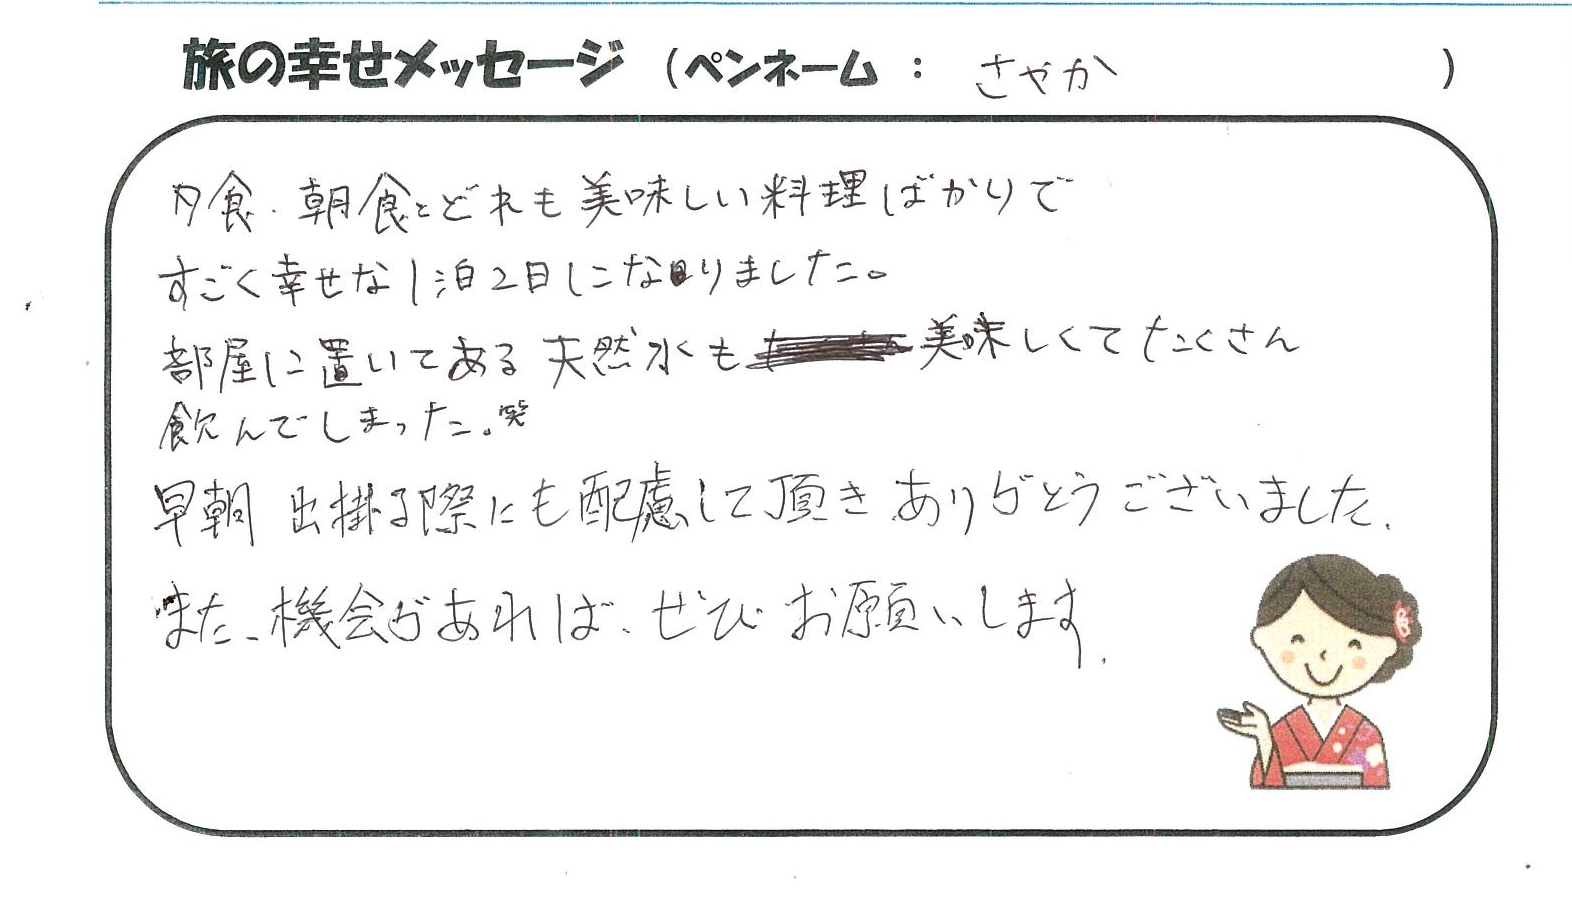 旅の幸せメッセージ (ペンネーム : さやか )
夕食、朝食とどれも美味しい料理ばかりで
すごく幸せな1泊2日になりました。
部屋に置いてある天然水も美味しくてたくさん
飲んでしまった。笑
早朝出掛る際にも配慮して頂きありがとうございました.
また、機会があれば、ぜひお願いします.